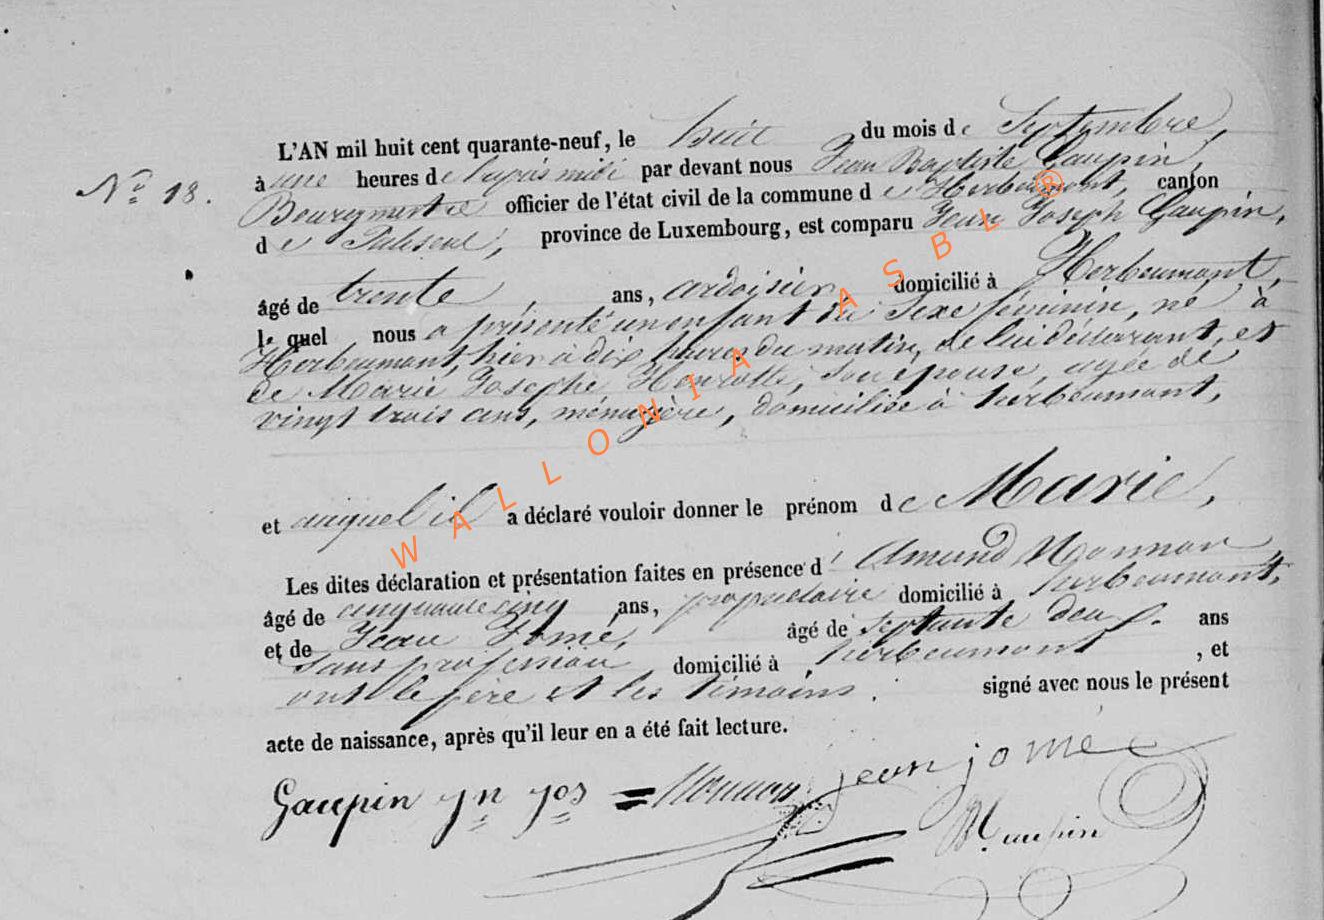 L'AN mil huit cent quarante-neuf, le huit du mois de Septembre,
à une heures de l'après midi par devant nous Jean Baptiste Gaupin,
N° 18.
Bourgmestre officier de l'état civil de la commune de Herbeumont, canton
de Paliseul, province de Luxembourg, est comparu Jean Joseph Gaupin,
âgé de trente, ans, ardoisier, domicilié à Herbeumont,
lequel nous a présenté un enfant du Sexe féminin, né à
Herbeumont, hier à dix heures du matin, de lui déclarant, et
de Marie Josephe Henrotte, son épouse, agée de
vingt trois ans, ménagère, domiciliée à herbeumont,
et auquel il a déclaré vouloir donner le prénom de Marie,
Les dites déclaration et présentation faites en présence d'Amand
âgé de cinquante cinq ans, propriétaire domicilié à herbeumont,
et de Jean Jomé, âgé de septante deux. ans
sans profession, domicilié à herbeumont, et
ont le père et les témoins. signé avec nous le présent
acte de naissance, après qu'il leur en a été fait lecture.
Gaupin jn jos jean jomé
Gaupin
WALLONIA ASBL ®